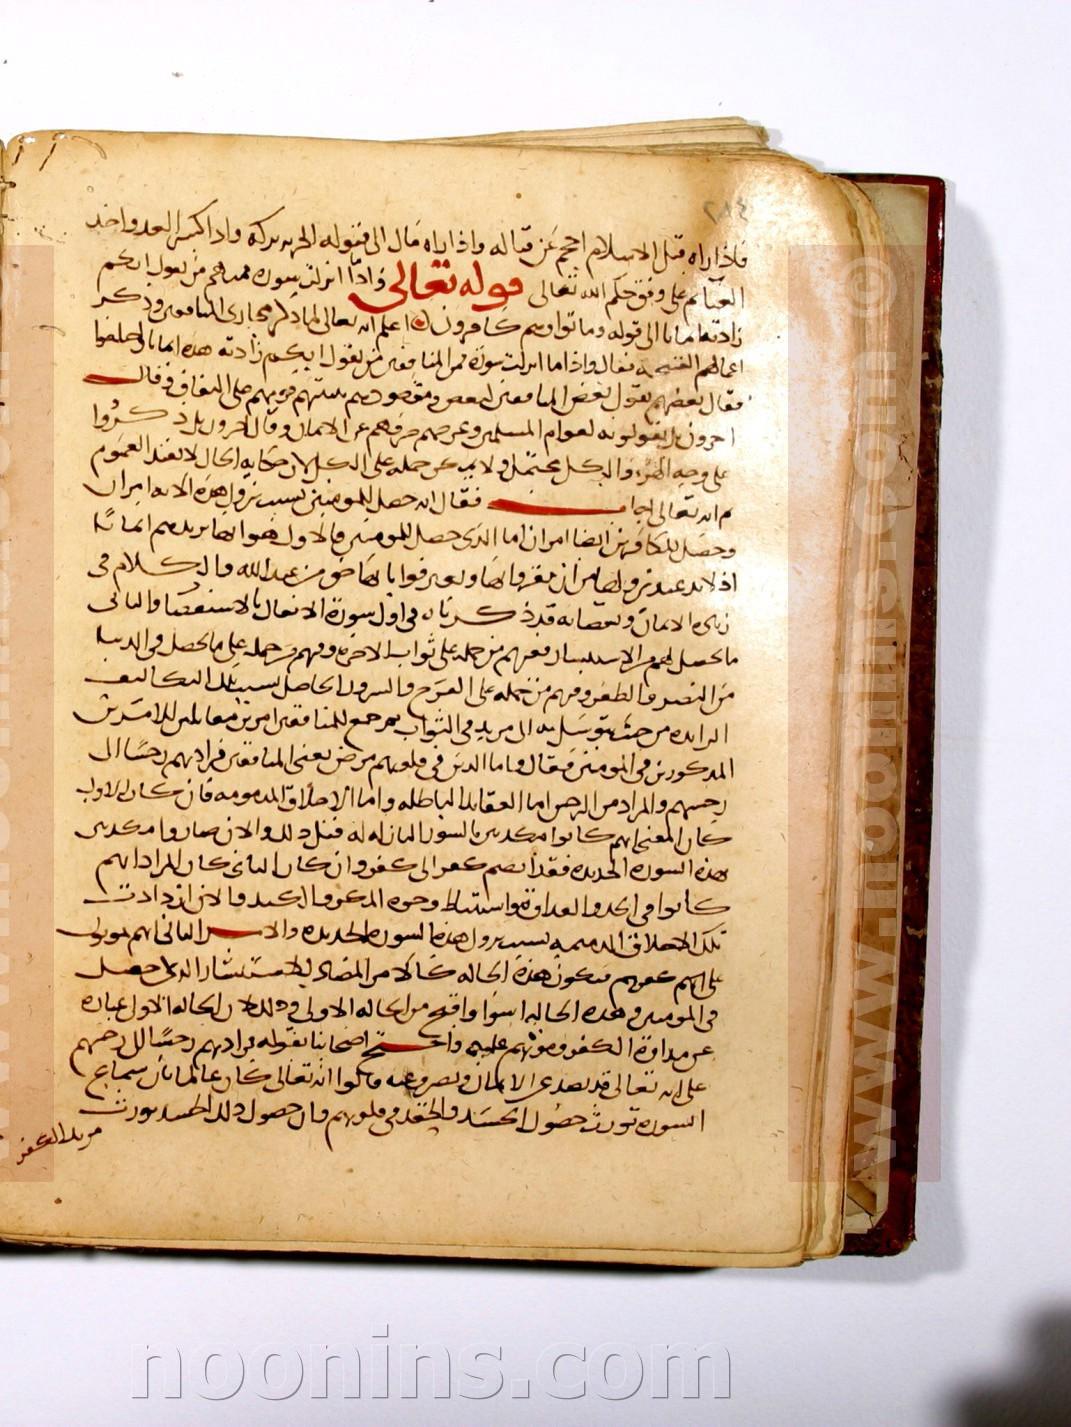 ٢٨٤
فاذا راه قبل الاسلام احجم عن قتاله واذا راه مال الى قبوله الجزيه تركه واذا كسر العدو واخذ
الغنائم على وفق حكم الله تعالى قوله تعالى واذا ما انزلت سوره فمنهم من يقول ايكم
زادته ايمانا الى قوله وماتوا وهم كافرون اعلم انه تعالى لما ذكر مخازى المنافقين وذكر
اعمالهم القبيحه فقال واذا ما انزلت سورة فمن المنافقين من يقول ايكم زادته هذه ايمانا واختلفوا
فقال بعضهم يقول بعض المنافقين لبعض ومقصودهم تثبيتهم قومهم على النفاق وقال
اخرون بل يقولونه لعوام المسلمين وغرضهم صرفهم عن الايمان وقال اخرون بل ذكروا
على وجه الهزؤ والكل محتمل ولا يمكن حمله على الكل لان حكايه الحال لا تفيد العموم
ثم انه تعالى اجاب فقال انه حصل للمومنين بسبب نزول هذه الايه امران
وحصل للكافرين ايضا امران اما الذى حصل للمومنين فالاول هو انها تزيدهم ايمانا
اذ لا بد عند نزولها من ان يقروا بها ويعترفوا بانها حق من عند الله والكلام فى
زياده الايمان ونقصانه قد ذكرناه فى اول سورة الانفال بالاستقصا والثانى
ما يحصل لهم من الاستبشار فمنهم من حمله على ثواب الاخره ومنهم من حمله على ما يحصل فى الدنيا
من النصر والظفر ومنهم من حمله على الفرح والسرور الحاصل بسبب تلك التكاليف
الزايده من حيث يتوسل به الى مزيد فى الثواب ثم جمع للمنافقين امرين مقابلين للامرين
المذكورين فى المومنين فقال واما الذين فى قلوبهم مرض يعنى المنافقين فزادتهم رجسا الى
رجسهم والمراد من الرجس اما العقايد الباطله واما الاخلاق المذمومه فان كان الاول
كان المعنى انهم كانوا مكذبين بالسور النازله قبل ذلك والان صاروا مكذبين
بهذه السوره الجديده فقد انضم كفر الى كفر وان كان الثانى كان المراد انهم
كانوا فى الحسد والعداوة واستنباط وجوه المكر والكيد والان ازدادت
تلك الاخلاق الذميمه بسبب نزول هذه السوره الجديده والامر الثانى انهم يموتون
على كفرهم فتكون هذه الحاله كالامر المضاد للاستبشار الذى حصل
فى المومنين وهذه الحاله اسوا واقبح من الحاله الاولى وذلك لان الحاله الاولى عباره
عن مداومة الكفر وموتهم عليه واحتج اصحابنا بقوله فزادتهم رجسا الى رجسهم
على انه تعالى قد يصد عن الايمان ويصرف عنه قالوا انه تعالى كان عالما بان سماع
السوره تورث حصول الحسد والحقد فى قلوبهم وان حصول ذلك الحسد يورث
مزيد الكفر
www.noonins.com
noonins.com